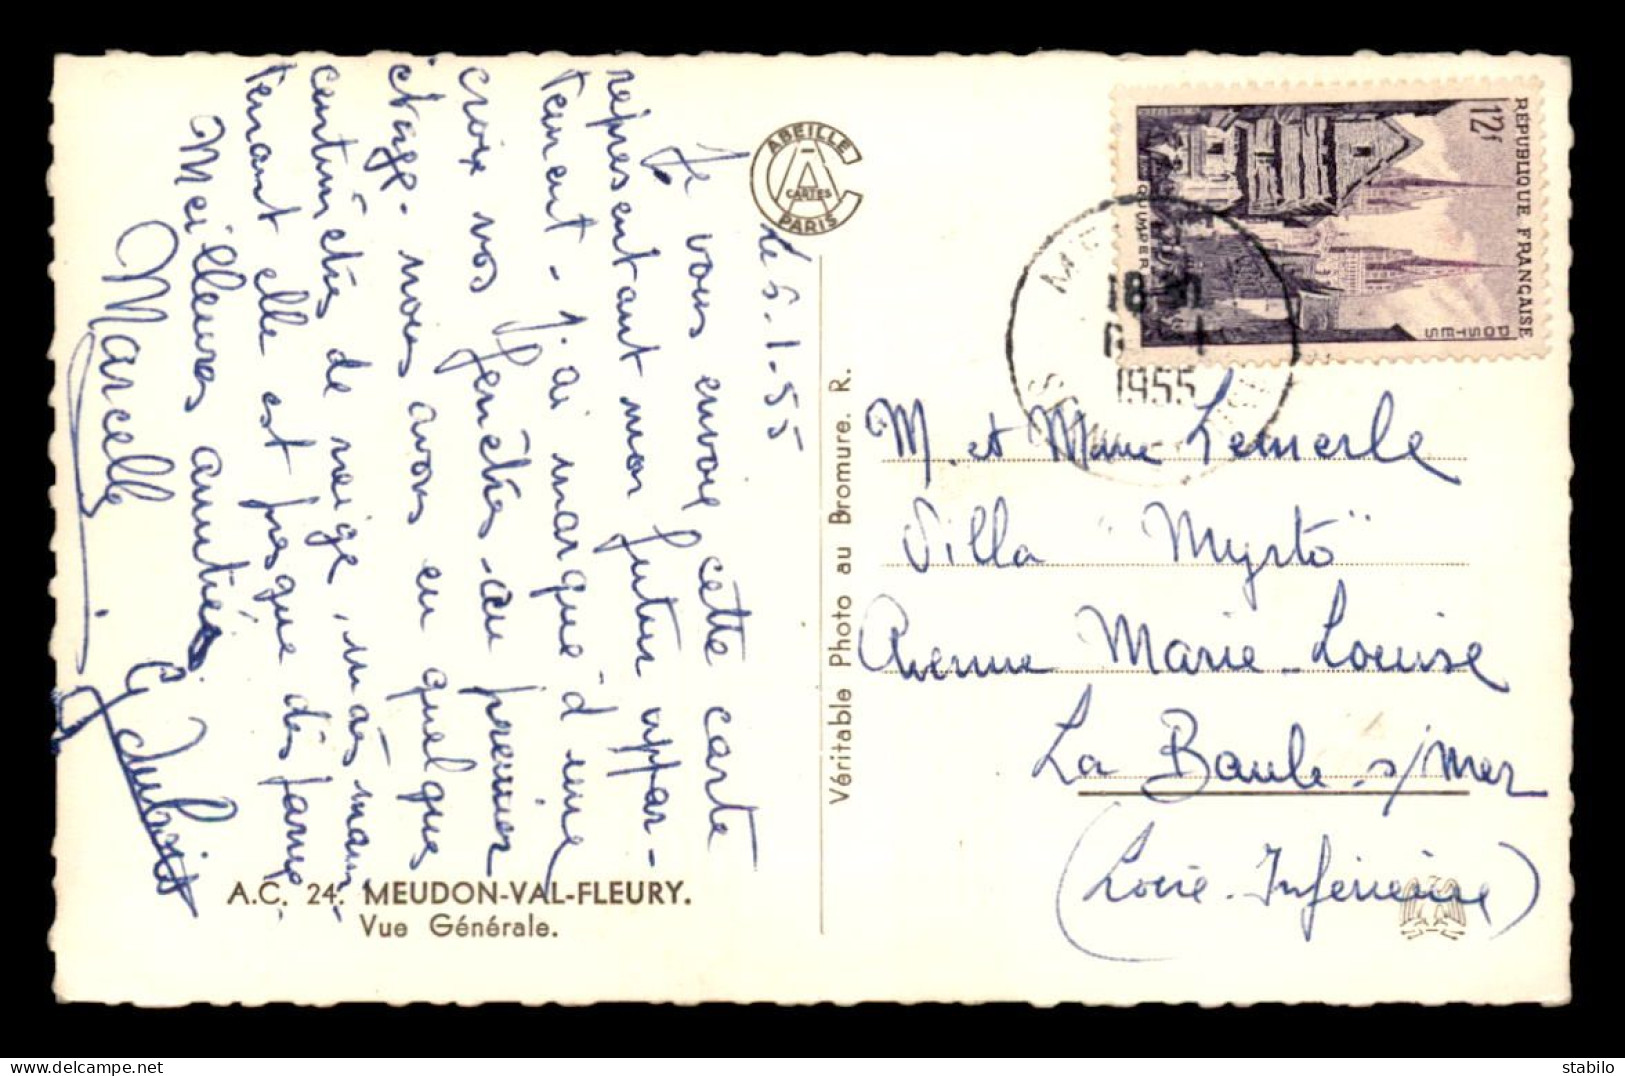 le 6.1.55
Je vous envoie cette carte
représentant mon futur appar-
tement - J'ai marqué d'une
croix vos fenêtres - au premier
étage - nous avons eu quelques
centimètres de neige, mais main-
tenant elle est presque dis
Meilleures amitiés
Marcelle
ABEILLE
CARTES
PARIS
A.C. 24. MEUDON-VAL-FLEURY.
Vue Générale.
Véritable Photo au Bromure. R.
RÉPUBLIQUE FRANÇAISE
12f
POSTES
QUIMPER
18 30
6 - 1
1955
M. et Mme Lemerle
Villa "Myrto"
Avenue Marie-Louise
La Baule s/Mer
(Loire-Inférieure)
stabilo